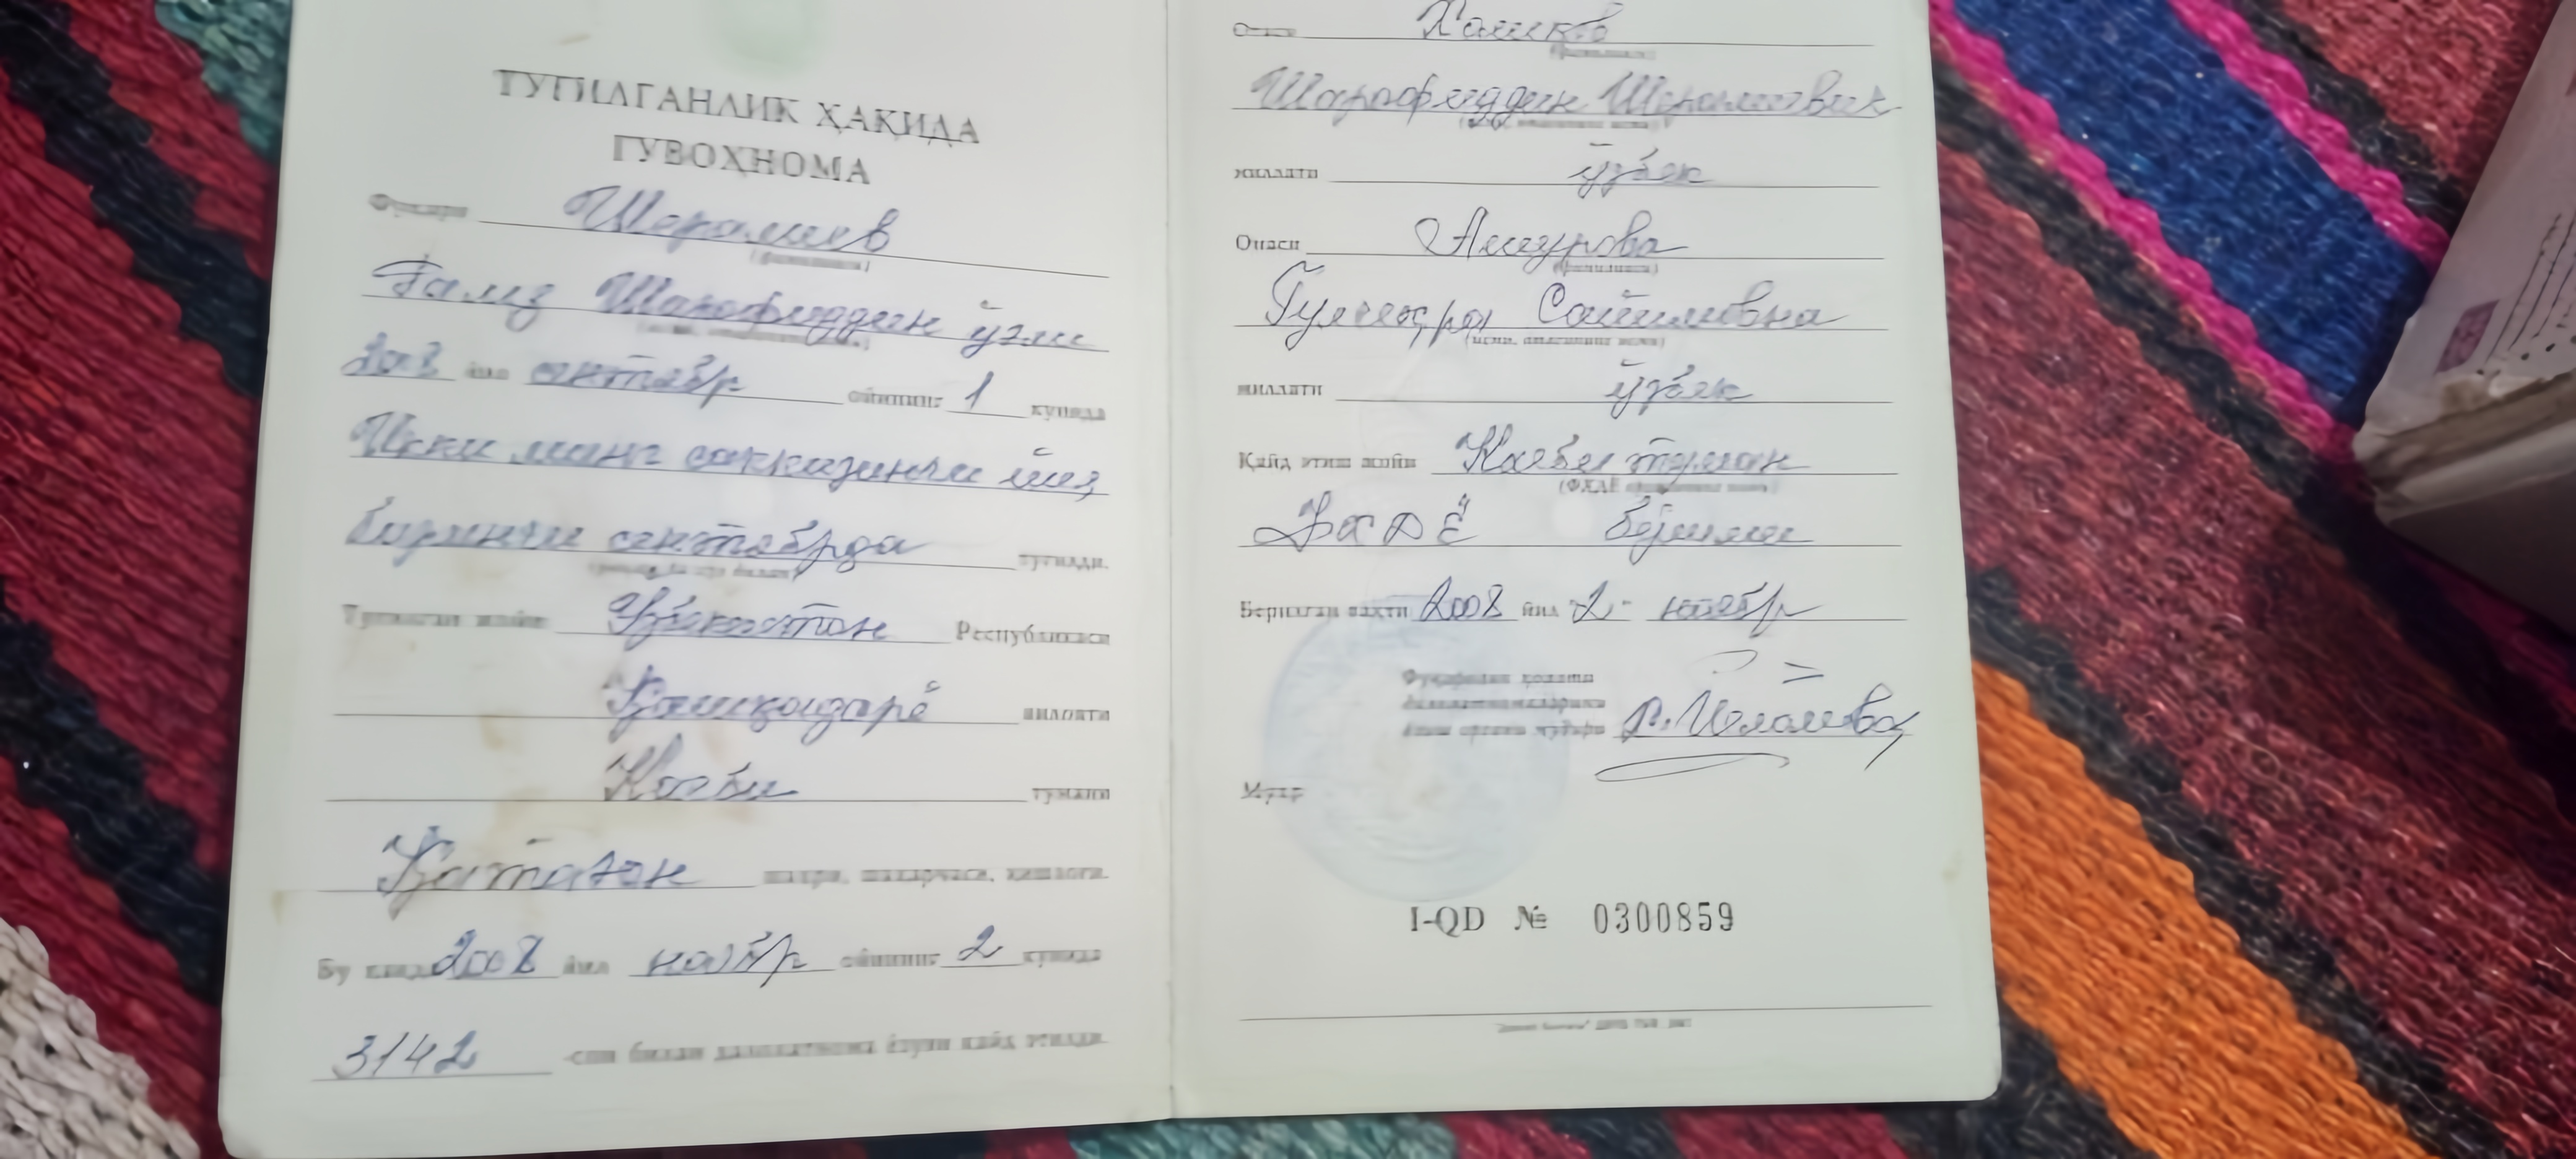 ТУҒИЛГАНЛИК ҲАҚИДА
ГУВОҲНОМА
Фуқаро Шералиев
(фамилияси)
Шарофиддин ўғли
2008 йил сентябр ойининг 1 кунида
Икки минг саккизинчи йил,
биринчи сентябрда туғилди.
Туғилган жойи Ўзбекистон Республикаси
Қашқадарё вилояти
Касби тумани
Қатағон шаҳри, шаҳарчаси, қишлоғи.
Бу ҳақда 2008 йил ноябр ойининг 2 кунида
3142 -сон билан далолатнома ёзуви қайд этилди.
Отаси
(фамилияси)
Шарофиддин Шералиевич
миллати ўзбек
Онаси Ашурова
(фамилияси)
Гулчеҳра Сайимовна
(исми, отасининг исми)
миллати ўзбек
Қайд этиш жойи Касби туман
(ФҲДЁ органининг номи)
ФҲДЁ бўлими
Берилган вақти 2008 йил "2" ноябр
Фуқаролик ҳолати
далолатномаларини
ёзиш органи мудири
Муҳр
I-QD № 0300859